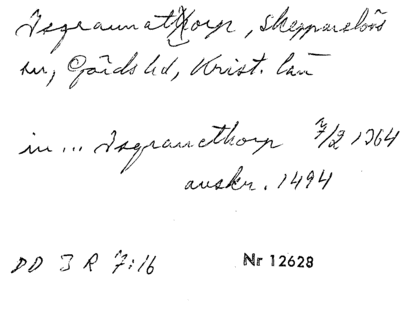 Isgrannatorp, Skepparslövs
sn, Gärds hd, Krist. län
in ... Isgranethorp 7/2 1364
avskr. 1494
DD 3 R 7:16
Nr 12628